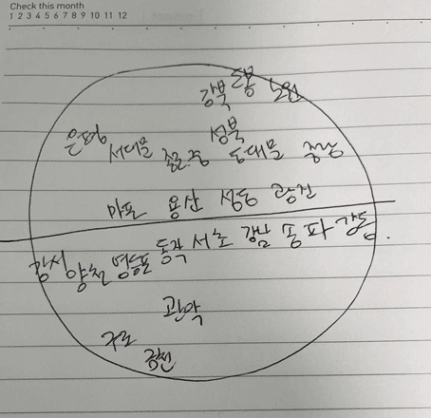 Check this month
1 2 3 4 5 6 7 8 9 10 11 12
강북 도봉 노원
은평 서대문 종로 중 성북 동대문 중랑
마포 용산 성동 광진
강서 양천 영등포 동작 서초 강남 송파 강동
관악
구로
금천